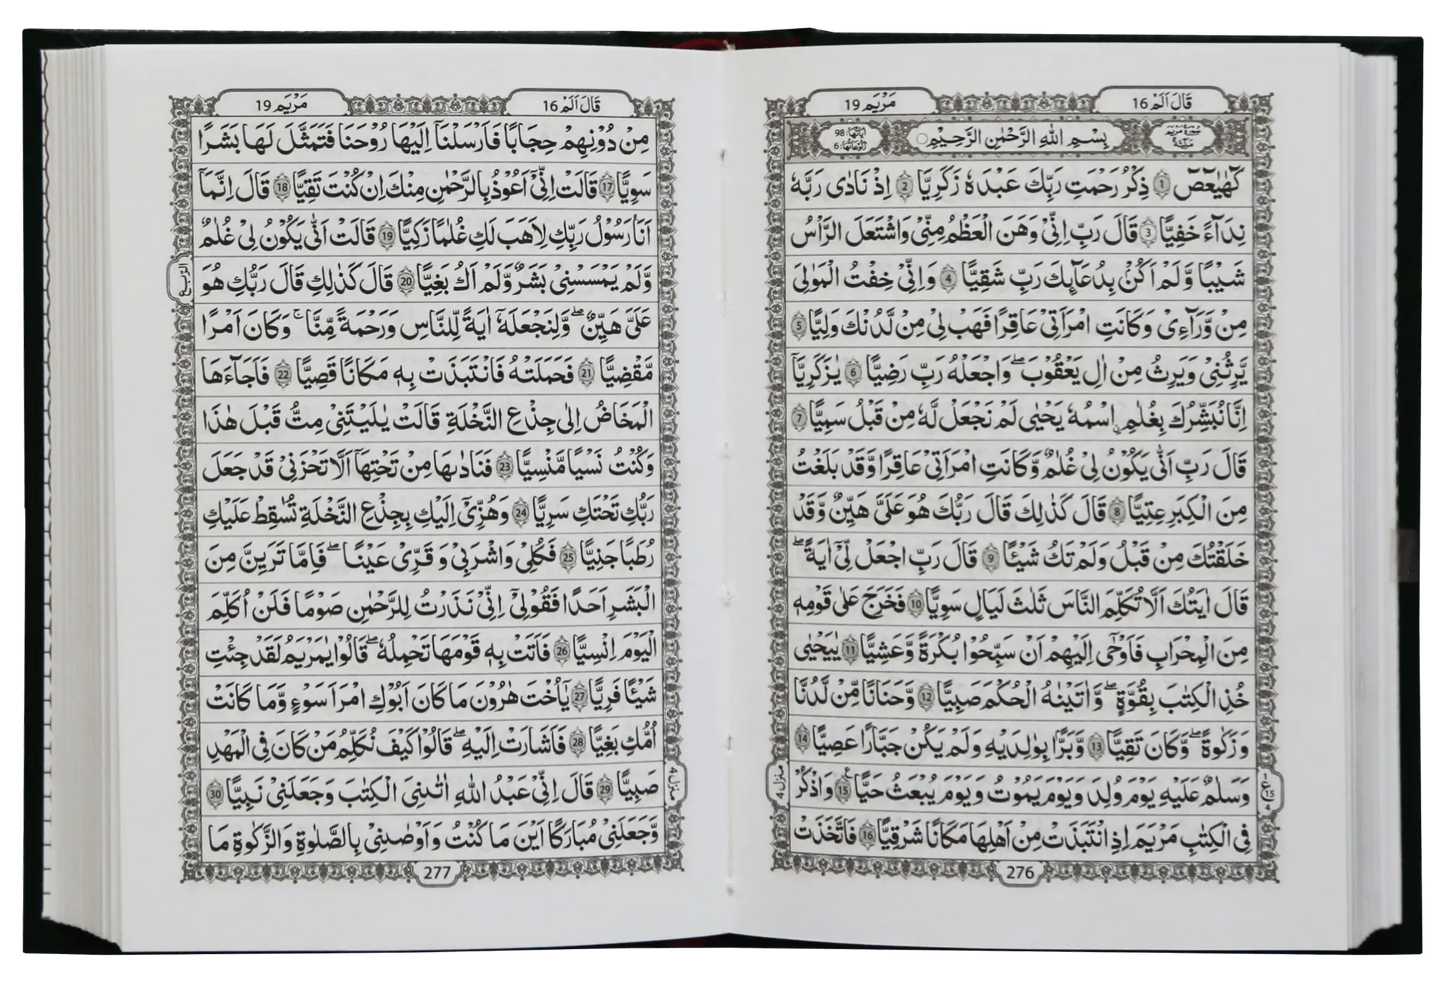 قَالَ اَلَمْ 16
مَرْيَم 19
سُوْرَةُ مَرْيَمَ مَكِّيَّةٌ
بِسْمِ اللّٰهِ الرَّحْمٰنِ الرَّحِيْمِ
اٰيَاتُهَا: 98
رُكُوْعَاتُهَا: 6
كٓهٰيٰعٓصٓ 1 ذِكْرُ رَحْمَتِ رَبِّكَ عَبْدَهٗ زَكَرِيَّا 2 اِذْ نَادٰى رَبَّهٗ
نِدَآءً خَفِيًّا 3 قَالَ رَبِّ اِنِّيْ وَهَنَ الْعَظْمُ مِنِّيْ وَاشْتَعَلَ الرَّاْسُ
شَيْبًا وَّلَمْ اَكُنْۢ بِدُعَآئِكَ رَبِّ شَقِيًّا 4 وَاِنِّيْ خِفْتُ الْمَوَالِيَ
مِنْ وَّرَآءِيْ وَكَانَتِ امْرَاَتِيْ عَاقِرًا فَهَبْ لِيْ مِنْ لَّدُنْكَ وَلِيًّا 5
يَّرِثُنِيْ وَيَرِثُ مِنْ اٰلِ يَعْقُوْبَ ۖ وَاجْعَلْهُ رَبِّ رَضِيًّا 6 يٰزَكَرِيَّآ
اِنَّا نُبَشِّرُكَ بِغُلٰمِ ۨاسْمُهٗ يَحْيٰى لَمْ نَجْعَلْ لَّهٗ مِنْ قَبْلُ سَمِيًّا 7
قَالَ رَبِّ اَنّٰى يَكُوْنُ لِيْ غُلٰمٌ وَّكَانَتِ امْرَاَتِيْ عَاقِرًا وَّقَدْ بَلَغْتُ
مِنَ الْكِبَرِ عِتِيًّا 8 قَالَ كَذٰلِكَ قَالَ رَبُّكَ هُوَ عَلَيَّ هَيِّنٌ وَّقَدْ
خَلَقْتُكَ مِنْ قَبْلُ وَلَمْ تَكُ شَيْـًٔا 9 قَالَ رَبِّ اجْعَلْ لِّيْٓ اٰيَةً ۖ
قَالَ اٰيَتُكَ اَلَّا تُكَلِّمَ النَّاسَ ثَلٰثَ لَيَالٍ سَوِيًّا 10 فَخَرَجَ عَلٰى قَوْمِهٖ
مِنَ الْمِحْرَابِ فَاَوْحٰٓى اِلَيْهِمْ اَنْ سَبِّحُوْا بُكْرَةً وَّعَشِيًّا 11 يٰيَحْيٰى
خُذِ الْكِتٰبَ بِقُوَّةٍ ۖ وَاٰتَيْنٰهُ الْحُكْمَ صَبِيًّا 12 وَّحَنَانًا مِّنْ لَّدُنَّا
وَزَكٰوةً ۖ وَّكَانَ تَقِيًّا 13 وَّبَرًّۢا بِوَالِدَيْهِ وَلَمْ يَكُنْ جَبَّارًا عَصِيًّا 14
وَسَلٰمٌ عَلَيْهِ يَوْمَ وُلِدَ وَيَوْمَ يَمُوْتُ وَيَوْمَ يُبْعَثُ حَيًّا 15 وَاذْكُرْ
فِي الْكِتٰبِ مَرْيَمَ اِذِ انْتَبَذَتْ مِنْ اَهْلِهَا مَكَانًا شَرْقِيًّا 16 فَاتَّخَذَتْ
منزل 4
276
قَالَ اَلَمْ 16
مَرْيَم 19
مِنْ دُوْنِهِمْ حِجَابًا فَاَرْسَلْنَآ اِلَيْهَا رُوْحَنَا فَتَمَثَّلَ لَهَا بَشَرًا
سَوِيًّا 17 قَالَتْ اِنِّيْٓ اَعُوْذُ بِالرَّحْمٰنِ مِنْكَ اِنْ كُنْتَ تَقِيًّا 18 قَالَ اِنَّمَآ
اَنَا رَسُوْلُ رَبِّكِ لِاَهَبَ لَكِ غُلٰمًا زَكِيًّا 19 قَالَتْ اَنّٰى يَكُوْنُ لِيْ غُلٰمٌ
وَّلَمْ يَمْسَسْنِيْ بَشَرٌ وَّلَمْ اَكُ بَغِيًّا 20 قَالَ كَذٰلِكِ قَالَ رَبُّكِ هُوَ
عَلَيَّ هَيِّنٌ ۖ وَلِنَجْعَلَهٗٓ اٰيَةً لِّلنَّاسِ وَرَحْمَةً مِّنَّا ۚ وَكَانَ اَمْرًا
مَّقْضِيًّا 21 فَحَمَلَتْهُ فَانْتَبَذَتْ بِهٖ مَكَانًا قَصِيًّا 22 فَاَجَآءَهَا
الْمَخَاضُ اِلٰى جِذْعِ النَّخْلَةِ قَالَتْ يٰلَيْتَنِيْ مِتُّ قَبْلَ هٰذَا
وَكُنْتُ نَسْيًا مَّنْسِيًّا 23 فَنَادٰىهَا مِنْ تَحْتِهَآ اَلَّا تَحْزَنِيْ قَدْ جَعَلَ
رَبُّكِ تَحْتَكِ سَرِيًّا 24 وَهُزِّيْٓ اِلَيْكِ بِجِذْعِ النَّخْلَةِ تُسٰقِطْ عَلَيْكِ
رُطَبًا جَنِيًّا 25 فَكُلِيْ وَاشْرَبِيْ وَقَرِّيْ عَيْنًا ۖ فَاِمَّا تَرَيِنَّ مِنَ
الْبَشَرِ اَحَدًا فَقُوْلِيْٓ اِنِّيْ نَذَرْتُ لِلرَّحْمٰنِ صَوْمًا فَلَنْ اُكَلِّمَ
الْيَوْمَ اِنْسِيًّا 26 فَاَتَتْ بِهٖ قَوْمَهَا تَحْمِلُهٗ ۖ قَالُوْا يٰمَرْيَمُ لَقَدْ جِئْتِ
شَيْـًٔا فَرِيًّا 27 يٰٓاُخْتَ هٰرُوْنَ مَا كَانَ اَبُوْكِ امْرَاَ سَوْءٍ وَّمَا كَانَتْ
اُمُّكِ بَغِيًّا 28 فَاَشَارَتْ اِلَيْهِ ۖ قَالُوْا كَيْفَ نُكَلِّمُ مَنْ كَانَ فِي الْمَهْدِ
صَبِيًّا 29 قَالَ اِنِّيْ عَبْدُ اللّٰهِ اٰتٰىنِيَ الْكِتٰبَ وَجَعَلَنِيْ نَبِيًّا 30
وَّجَعَلَنِيْ مُبٰرَكًا اَيْنَ مَا كُنْتُ وَاَوْصٰنِيْ بِالصَّلٰوةِ وَالزَّكٰوةِ مَا
الربع
منزل 4
277